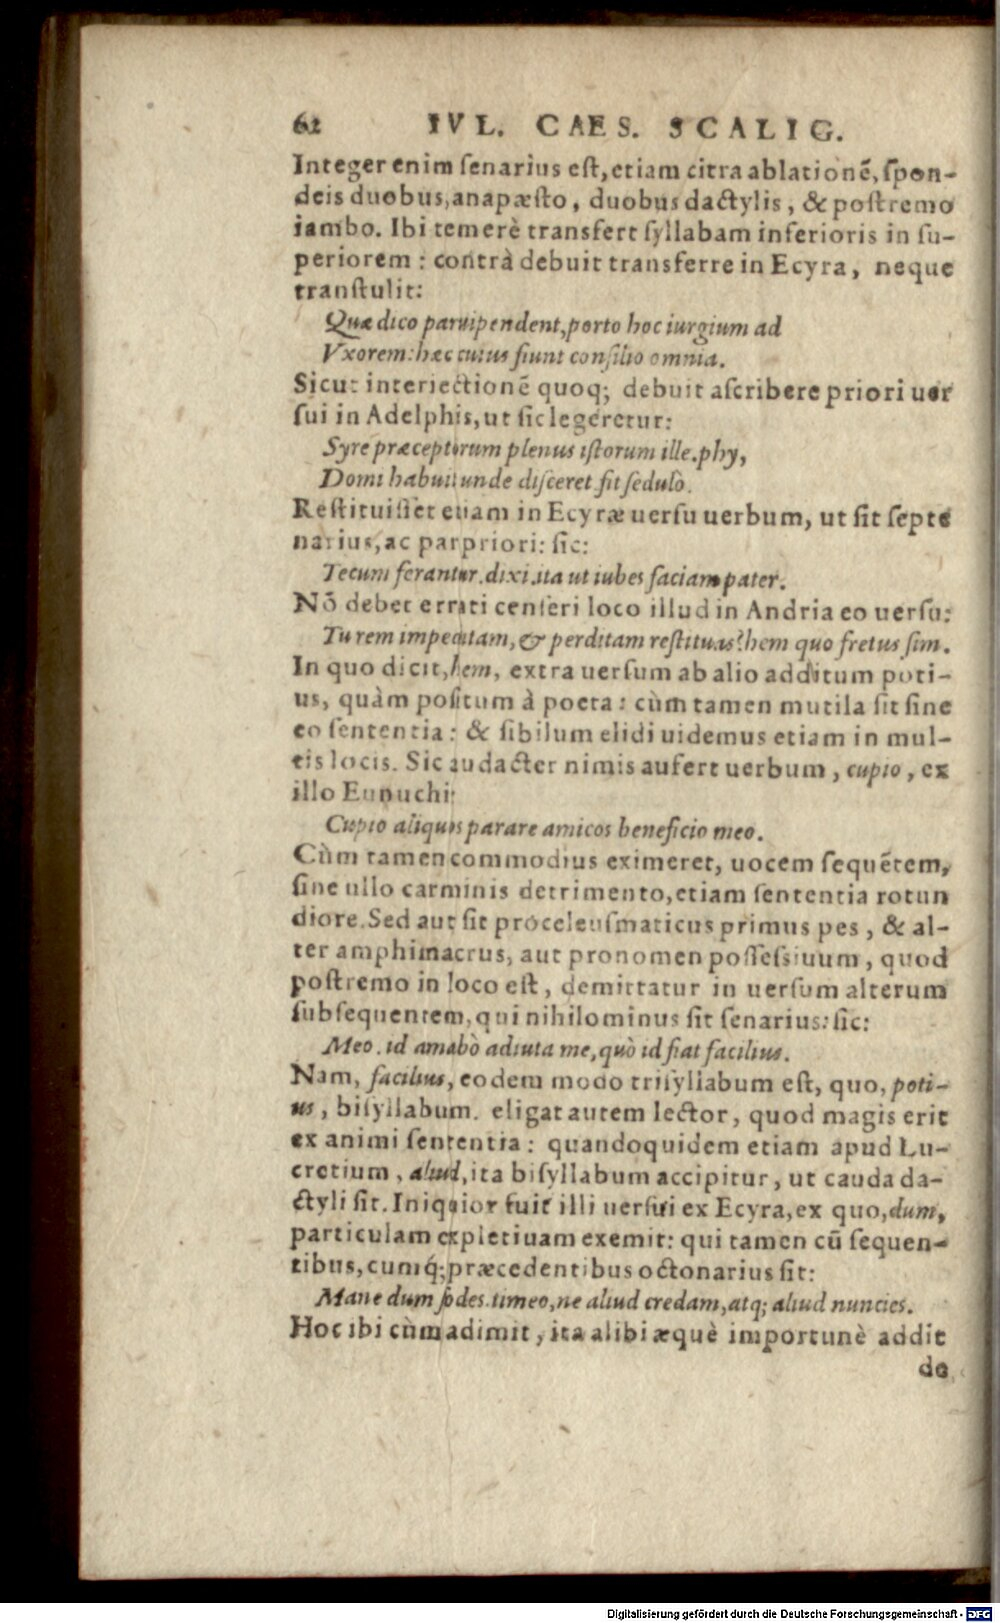 62 IVL. CAES. SCALIG.
Integer enim ſenarius eſt, etiam citra ablationē, ſpon-
deis duobus, anapæſto, duobus dactylis, & poſtremo
iambo. Ibi temerè transfert ſyllabam inferioris in ſu-
periorem: contrà debuit transferre in Ecyra, neque
tranſtulit:
Quæ dico paruipendent, porto hoc iurgium ad
Vxorem: hæc cuius fiunt conſilio omnia.
Sicut interiectionē quoq; debuit aſcribere priori uer
ſui in Adelphis, ut ſic legeretur:
Syre præceptorum plenus iſtorum ille. phy,
Domi habuit unde diſceret. fit ſedulò.
Reſtituiſſet etiam in Ecyræ uerſu uerbum, ut ſit ſepte
narius, ac par priori: ſic:
Tecum ferantur. dixi. ita ut iubes faciam pater.
Nō debet errati cenſeri loco illud in Andria eo uerſu:
Tu rem impeditam, & perditam reſtituas? hem quo fretus ſim.
In quo dicit, hem, extra uerſum ab alio additum poti-
us, quàm poſitum à poeta: cùm tamen mutila ſit ſine
eo ſententia: & ſibilum elidi uidemus etiam in mul-
tis locis. Sic audacter nimis aufert uerbum, cupio, ex
illo Eunuchi:
Cupio aliquos parare amicos beneficio meo.
Cùm tamen commodius eximeret, uocem ſequētem,
ſine ullo carminis detrimento, etiam ſententia rotun
diore. Sed aut ſit proceleuſmaticus primus pes, & al-
ter amphimacrus, aut pronomen poſſeſsiuum, quod
poſtremo in loco eſt, demittatur in uerſum alterum
ſubſequentem, qui nihilominus ſit ſenarius: ſic:
Meo. id amabò adiuta me, quò id fiat facilius.
Nam, facilius, eodem modo triſyllabum eſt, quo, poti-
us, biſyllabum. eligat autem lector, quod magis erit
ex animi ſententia: quandoquidem etiam apud Lu-
cretium, aliud, ita biſyllabum accipitur, ut cauda da-
ctyli ſit. Iniquior fuit illi uerſui ex Ecyra, ex quo, dum,
particulam expletiuam exemit: qui tamen cū ſequen-
tibus, cumq́; præcedentibus octonarius ſit:
Mane dum ſodes. timeo, ne aliud credam, atq; aliud nuncies.
Hoc ibi cùm adimit, ita alibi æquè importunè addit
de
Digitalisierung gefördert durch die Deutsche Forschungsgemeinschaft - DFG